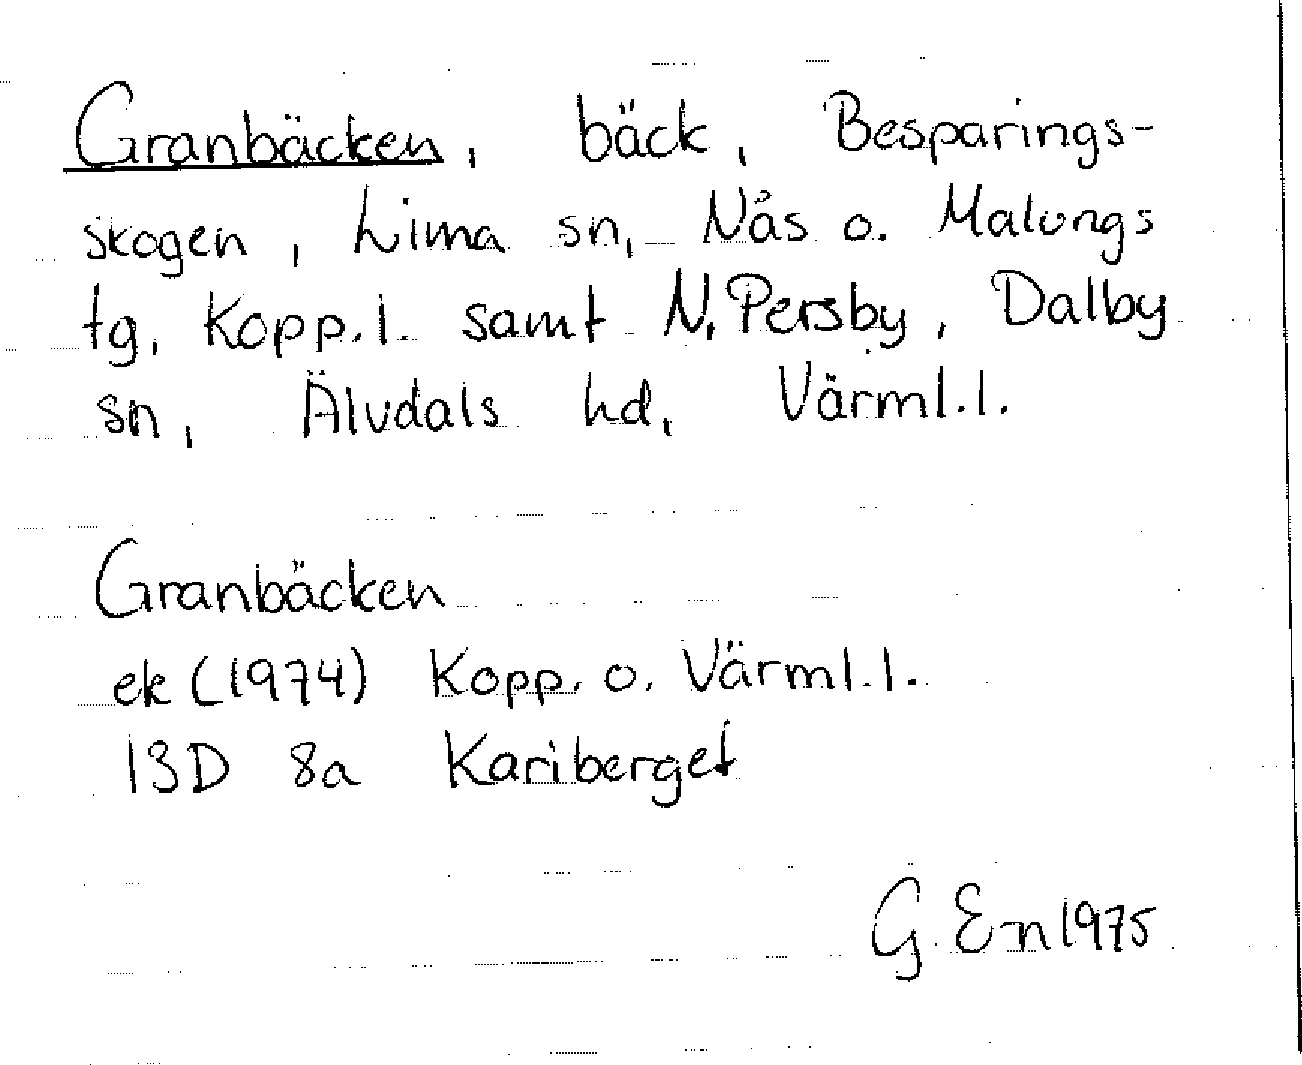 Granbäcken, bäck, Besparings-
skogen, Lima sn, Nås o. Malungs
tg, Kopp.l. samt N. Persby, Dalby
sn, Älvdals hd, Värml.l.
Granbäcken
ek (1974) Kopp. o. Värml.l.
13D 8a Kariberget
G. En 1975